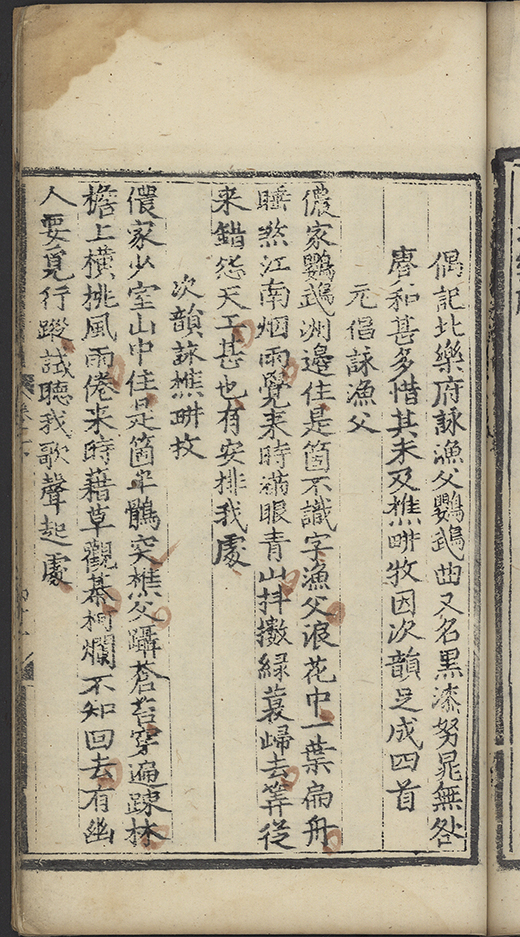 偶記北樂府詠漁父鸚鵡曲又名黑漆弩晁無咎
賡和甚多惜其未及樵畊牧因次韻足成四首
元倡詠漁父
儂家鸚鵡洲邊住是箇不識字漁父浪花中一葉扁舟
睡煞江南烟雨覺來時滿眼青山抖擻綠蓑歸去筭從
來錯怨天工甚也有安排我處
次韻詠樵畊牧
儂家少室山中住是箇半鶻突樵父躡蒼苔穿遍踈林
檐上橫挑風雨倦來時藉草觀棊柯爛不知回去有幽
人要覓行蹤試聽我歌聲起處